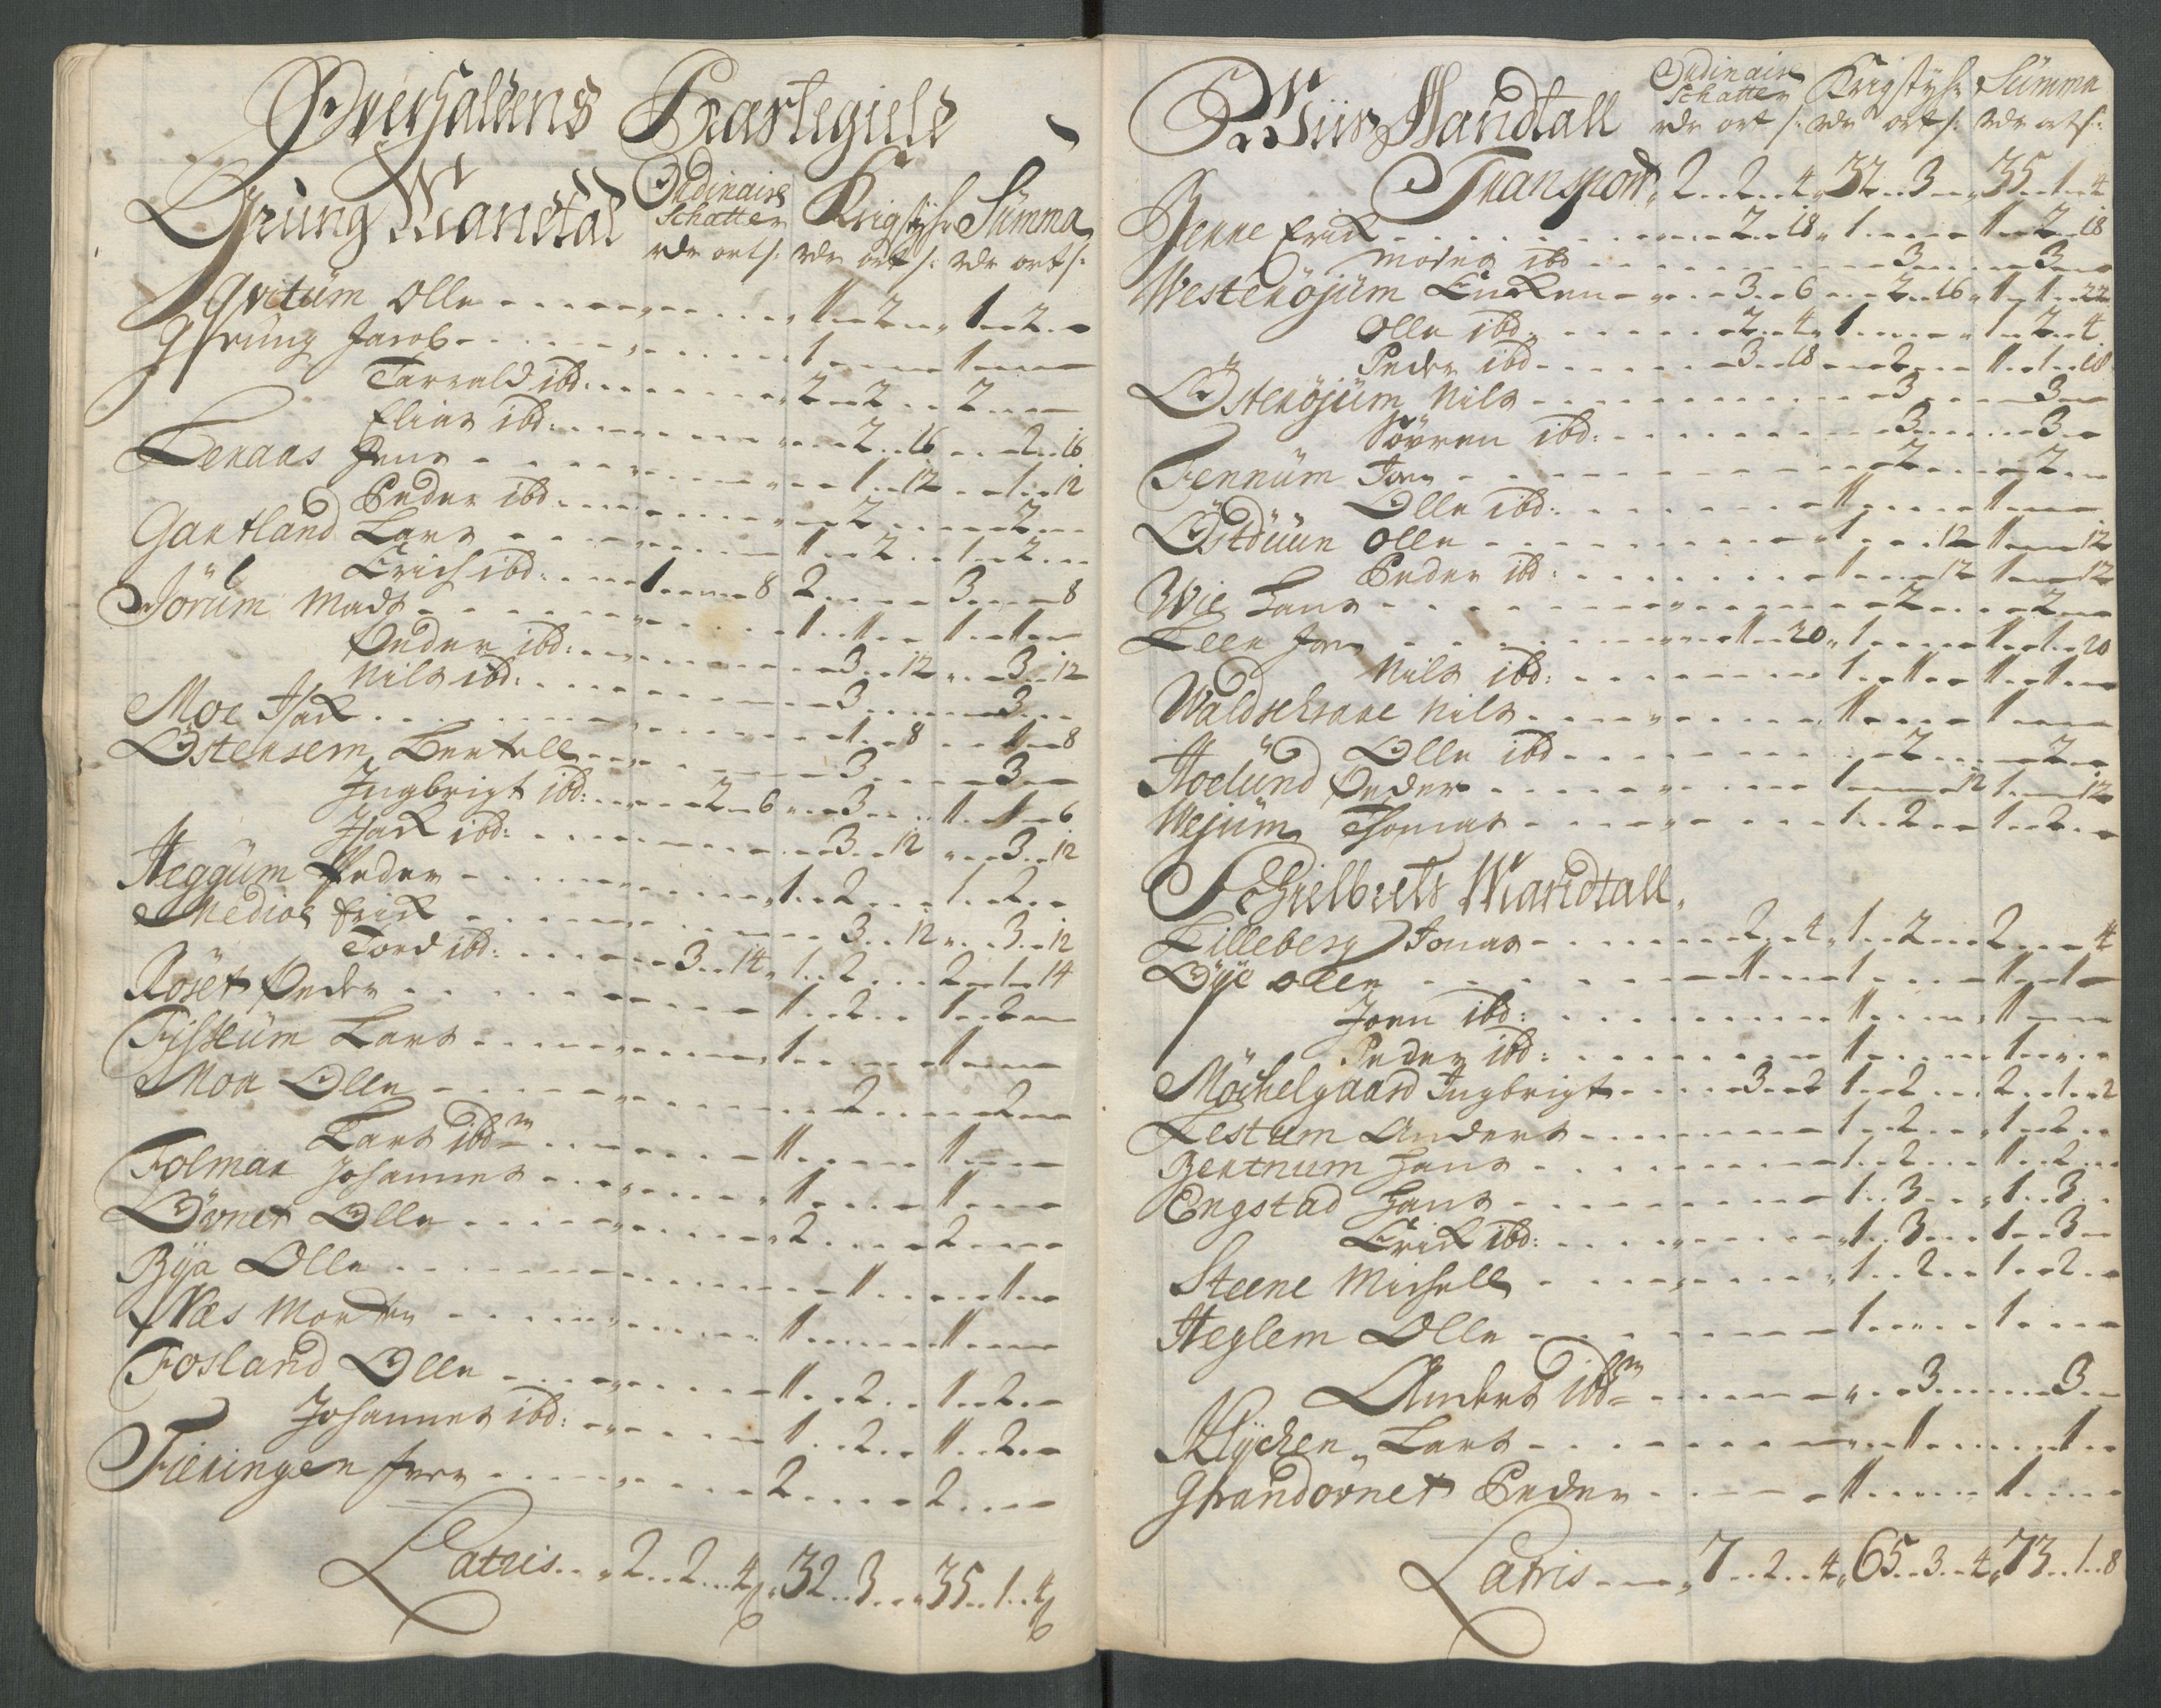 Overhaldens Præstegield
Grung Mandtal Ordinaire Schatter Krigstyhr Summa
rdr ort s: rdr ort s: rdr ort s:
Qvitüm Olle 1 2 1 2
Grüng Jacob 1 1
Tarrald ibd: 2 2 2
Elias ibd: 2 16 2 16
Leraas Jens 1 12 1 12
Peder ibd: 2 2
Gartland Lars 1 2 1 2
Erich ibd: 1 8 2 3 8
Jörüm Mads 1 1 1 1
Peder ibd: 3 12 3 12
Nils ibd: 3 3
Moe Isack 1 8 1 8
Östersem Bertell 3 3
Ingbrigt ibd: 2 6 3 1 1 6
Isack ibd: 3 12 3 12
Heggüm Peder 1 2 1 2
Medioe Erick 3 12 3 12
Tord ibd: 3 14 1 2 2 1 14
Röset Peder 1 2 1 2
Fisküm Lars 1 1
Moa Olle 2 2
Lars ibdm 1 1
Folmar Johannes 1 1
Övnet Olle 2 2
Bya Olle 1 1
Næs Morten 1 1
Fosland Olle 1 2 1 2
Johannes ibd: 1 2 1 2
Fieringen Iver 2 2
Latris 2 2 4 32 3 35 1 4
Wiis Mandtall Ordinaire Schatter Krigstyhr Summa
rdr ort s: rdr ort s: rdr ort s:
Transport 2 2 4 32 3 35 1 4
Jenne Erick 2 18 1 1 2 18
Mons ibd 3 3
Westeröjüm 3 6 2 16 1 1 22
Olle ibd 2 4 1 1 2 4
Peder ibd 3 18 2 1 1 18
Österöjüm Nils 3 3
Sövren ibd: 3 3
Fennüm Jon 2 2
Olle ibd: 1 1
Östdüün Olle 1 12 1 12
Peder ibd: 1 12 1 12
Wie Hans 2 2
Leer Jon 1 20 1 1 1 20
Nils ibd: 1 1 1 1
Waldschrane Nils 1 1
Olle ibd 2 2
Hoelünd Peder 1 12 1 12
Wejüm Thomas 1 2 1 2
Schielbreds Mandtall.
Lilleberg Jonas 2 4 1 2 2 4
Öÿe Olle 1 1 1 1
Joen ibd: 1 1
Peder ibd: 1 1
Möchelgaard Ingbrigt 3 2 1 2 2 1 2
Lestüm Anders 1 2 1 2
Bertnum Hans 1 2 1 2
Engstad Hans 1 3 1 3
Erick ibd: 1 3 1 3
Steene Michell 1 2 1 2
Heglem Olle 1 1
Anders ibdm 3 3
Klÿchen Lars 1 1
Grandövnet Peder 1 1
Latris 7 2 4 65 3 4 73 1 8